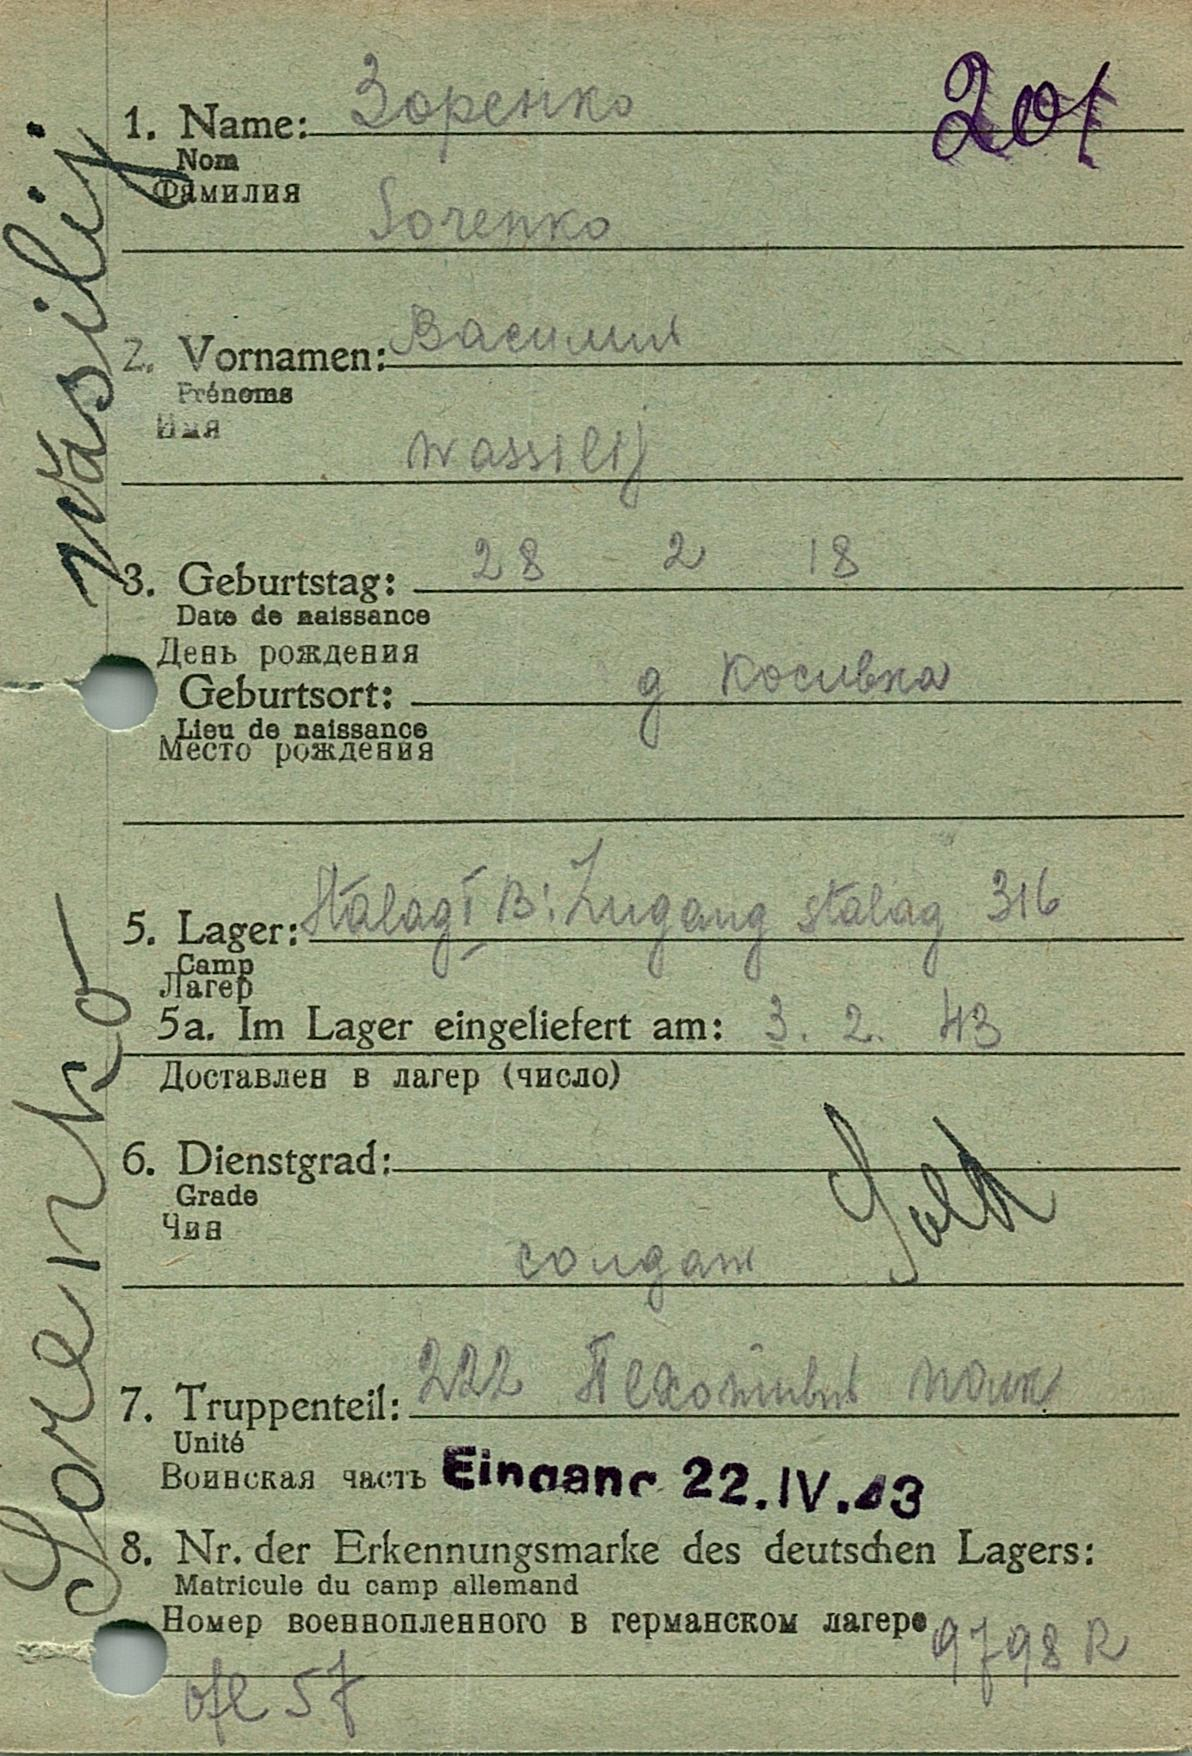 201
1. Name: Зоренко
Nom
Фамилия
Sorenko
2. Vornamen: Василий
Prénoms
Имя
Wassilij
3. Geburtstag: 28 2 18
Date de naissance
День рождения
Geburtsort: д Косивка
Lieu de naissance
Место рождения
5. Lager: Stalag I B: Zugang Stalag 316
Camp
Лагер
5a. Im Lager eingeliefert am: 3. 2. 43
Доставлен в лагер (число)
6. Dienstgrad:
Grade
Чин
Sold
солдат
7. Truppenteil: 222 Пехотный полк
Unité
Воинская часть Eingang 22.IV.43
8. Nr. der Erkennungsmarke des deutschen Lagers:
Matricule du camp allemand
Номер военнопленного в германском лагере 9798 R
ofl 57
Sorenko Wasilij